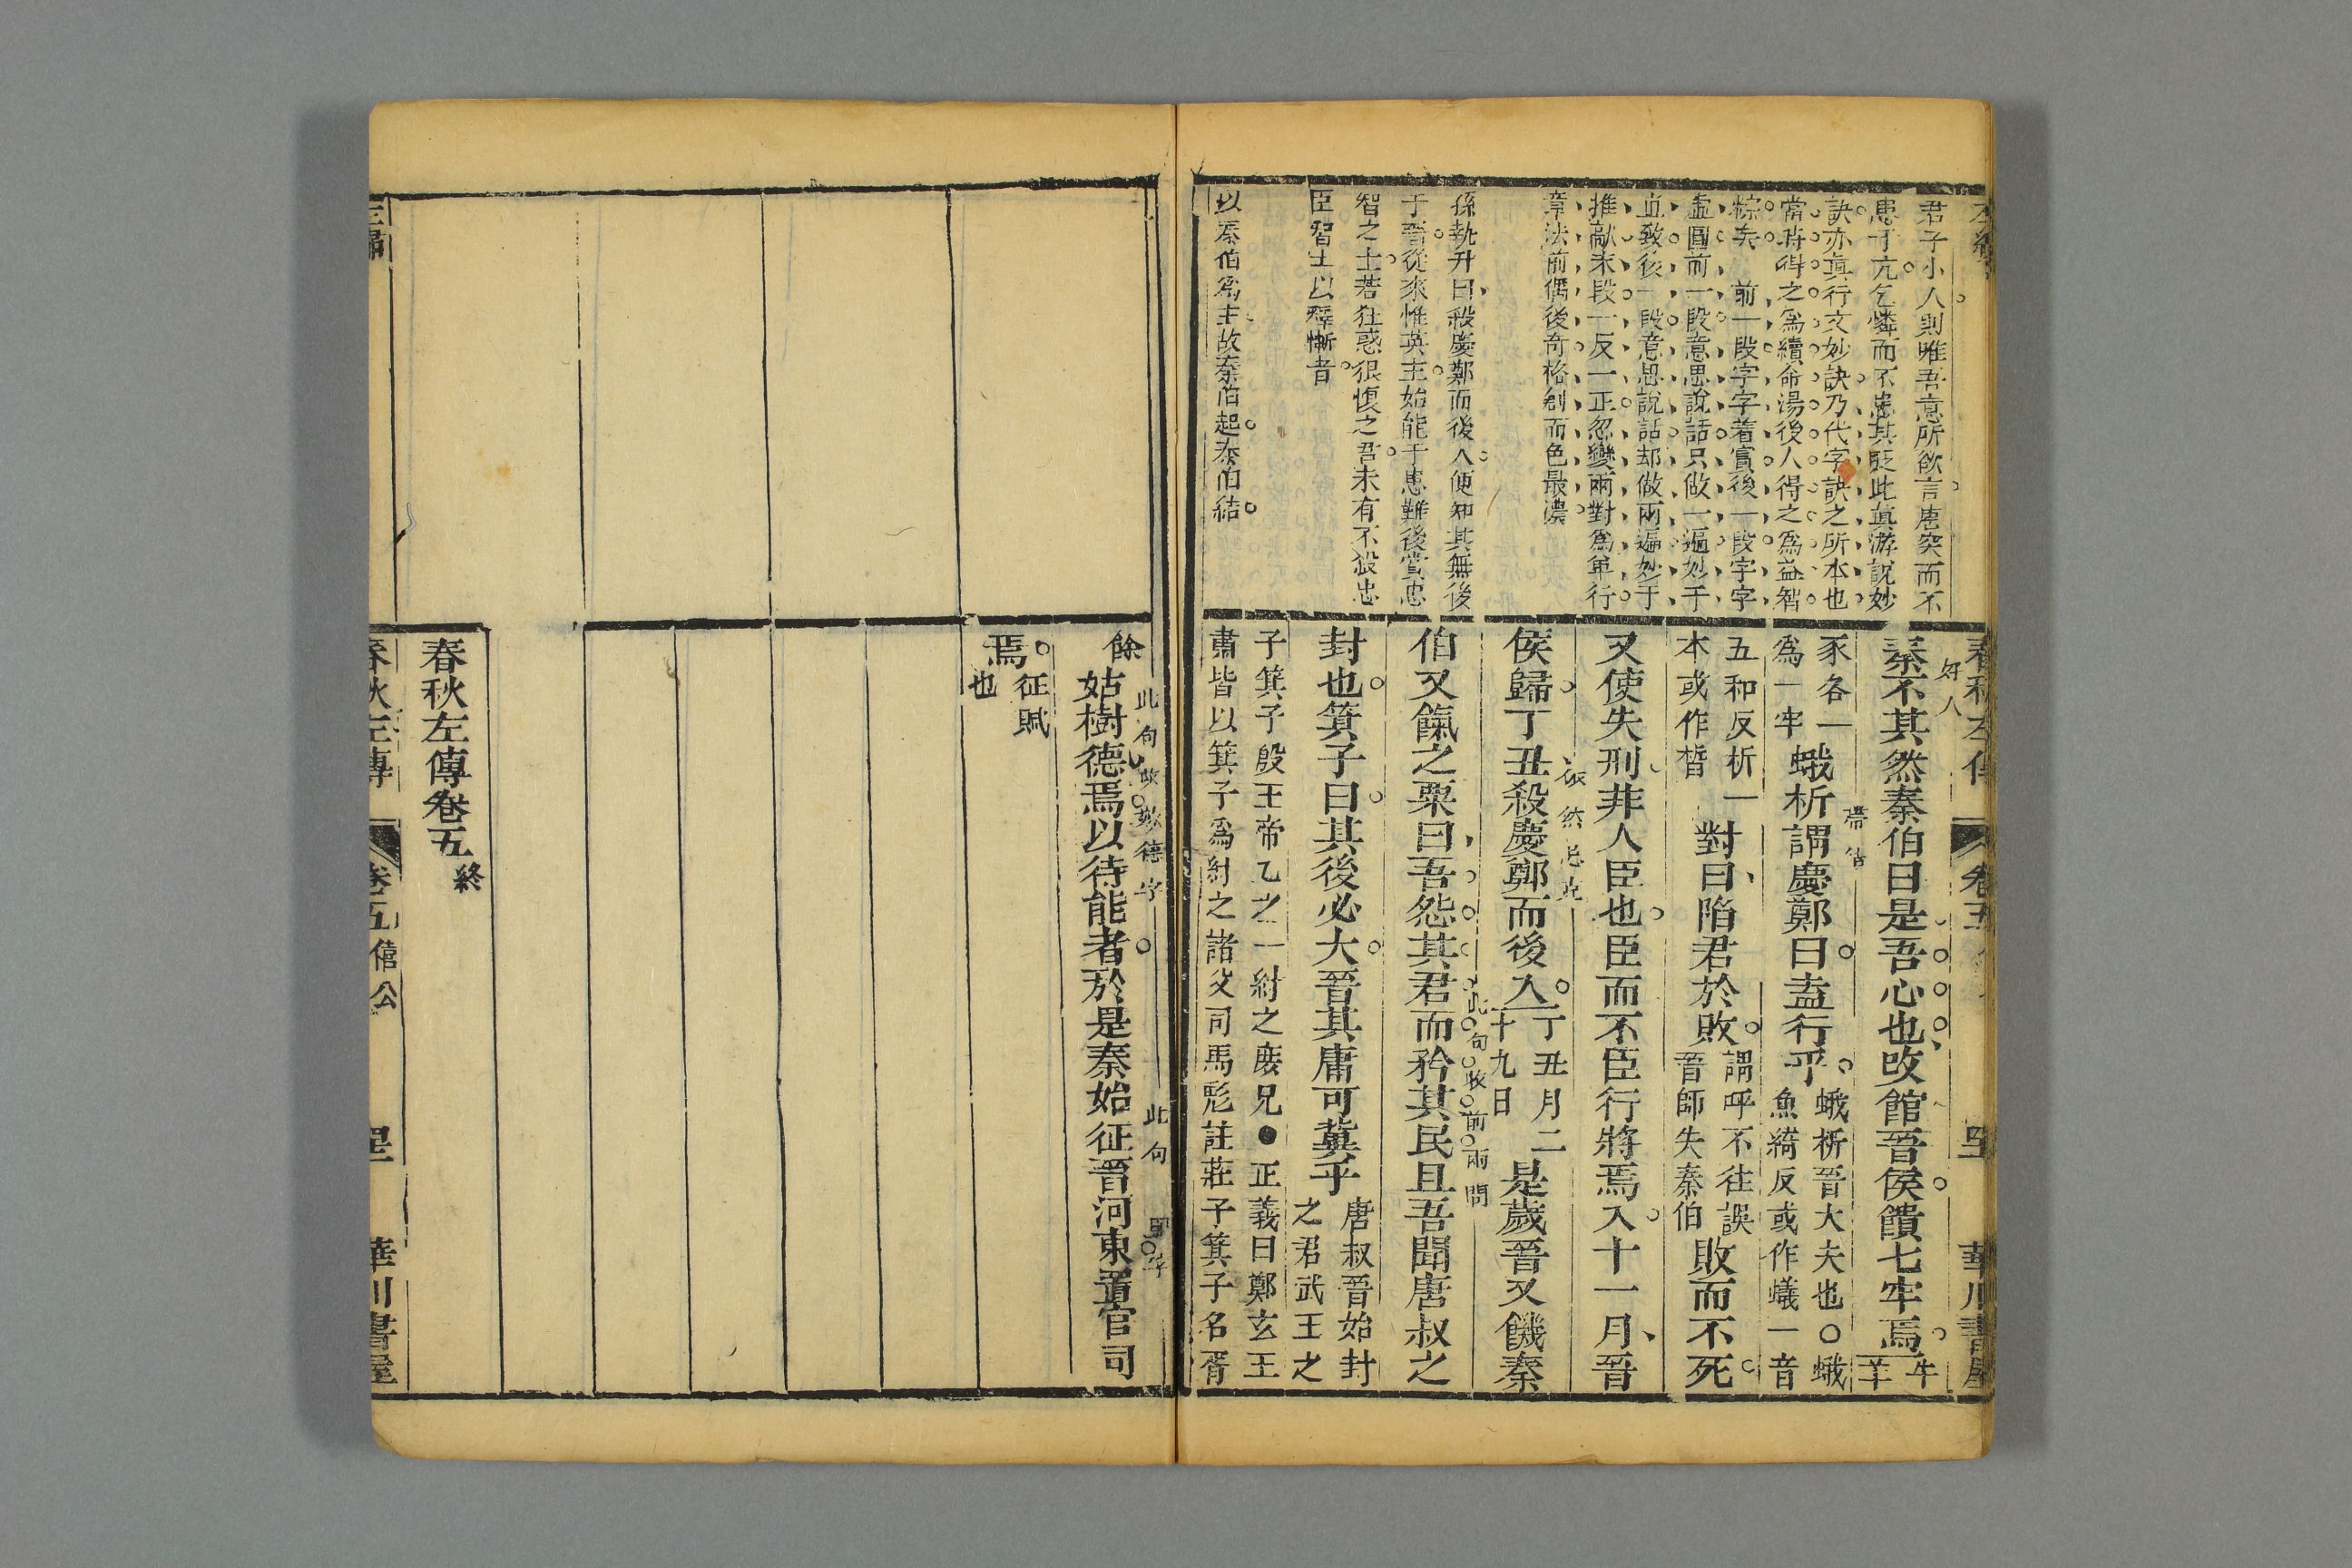 君子小人則唯吾意所欲言唐突而不
患于亢乞憐而不患其貶此眞游說妙
訣亦眞行文妙訣乃代字訣之所本也
當時得之爲續命湯後人得之爲益智
粽矣 前一段字字着實後一段字字
虛圓前一段意思說話只做一遍妙于
直致後一段意思說話却做兩遍妙于
推敲末段一反一正忽變兩對爲單行
章法前偶後奇格創而色最濃
孫執升曰殺慶鄭而後入便知其無後
于晉從來惟英主始能于患難後賞忠
智之士若狂惑很愎之君未有不殺忠
臣智士以釋慚者
以秦伯爲主故秦伯起秦伯結
春秋左傳
卷五
華川書屋
好人
秦不其然秦伯曰是吾心也攺館晉侯饋七牢焉牛羊
豕各一爲一牢蛾析謂慶鄭曰盍行乎蛾析晉大夫也○蛾魚綺反或作蟻一音
五和反析一本或作晳對曰陷君於敗謂呼不往誤晉師失秦伯敗而不死
又使失刑非人臣也臣而不臣行將焉入十一月晉
依然忌克
侯歸丁丑殺慶鄭而後入丁丑月二十九日是歲晉又饑秦
伯又餼之粟曰吾怨其君而矜其民且吾聞唐叔之
此句收前兩問
封也箕子曰其後必大晉其庸可冀乎唐叔晉始封之君武王之
子箕子殷王帝乙之一紂之庶兄●正義曰鄭玄王
肅皆以箕子爲紂之諸父司馬彪註莊子箕子名胥
餘姑樹德焉以待能者於是秦始征晉河東置官司
此句收
德字
此句
焉征賦也
春秋左傳卷五終
春秋左傳
卷五
僖公
華川書屋